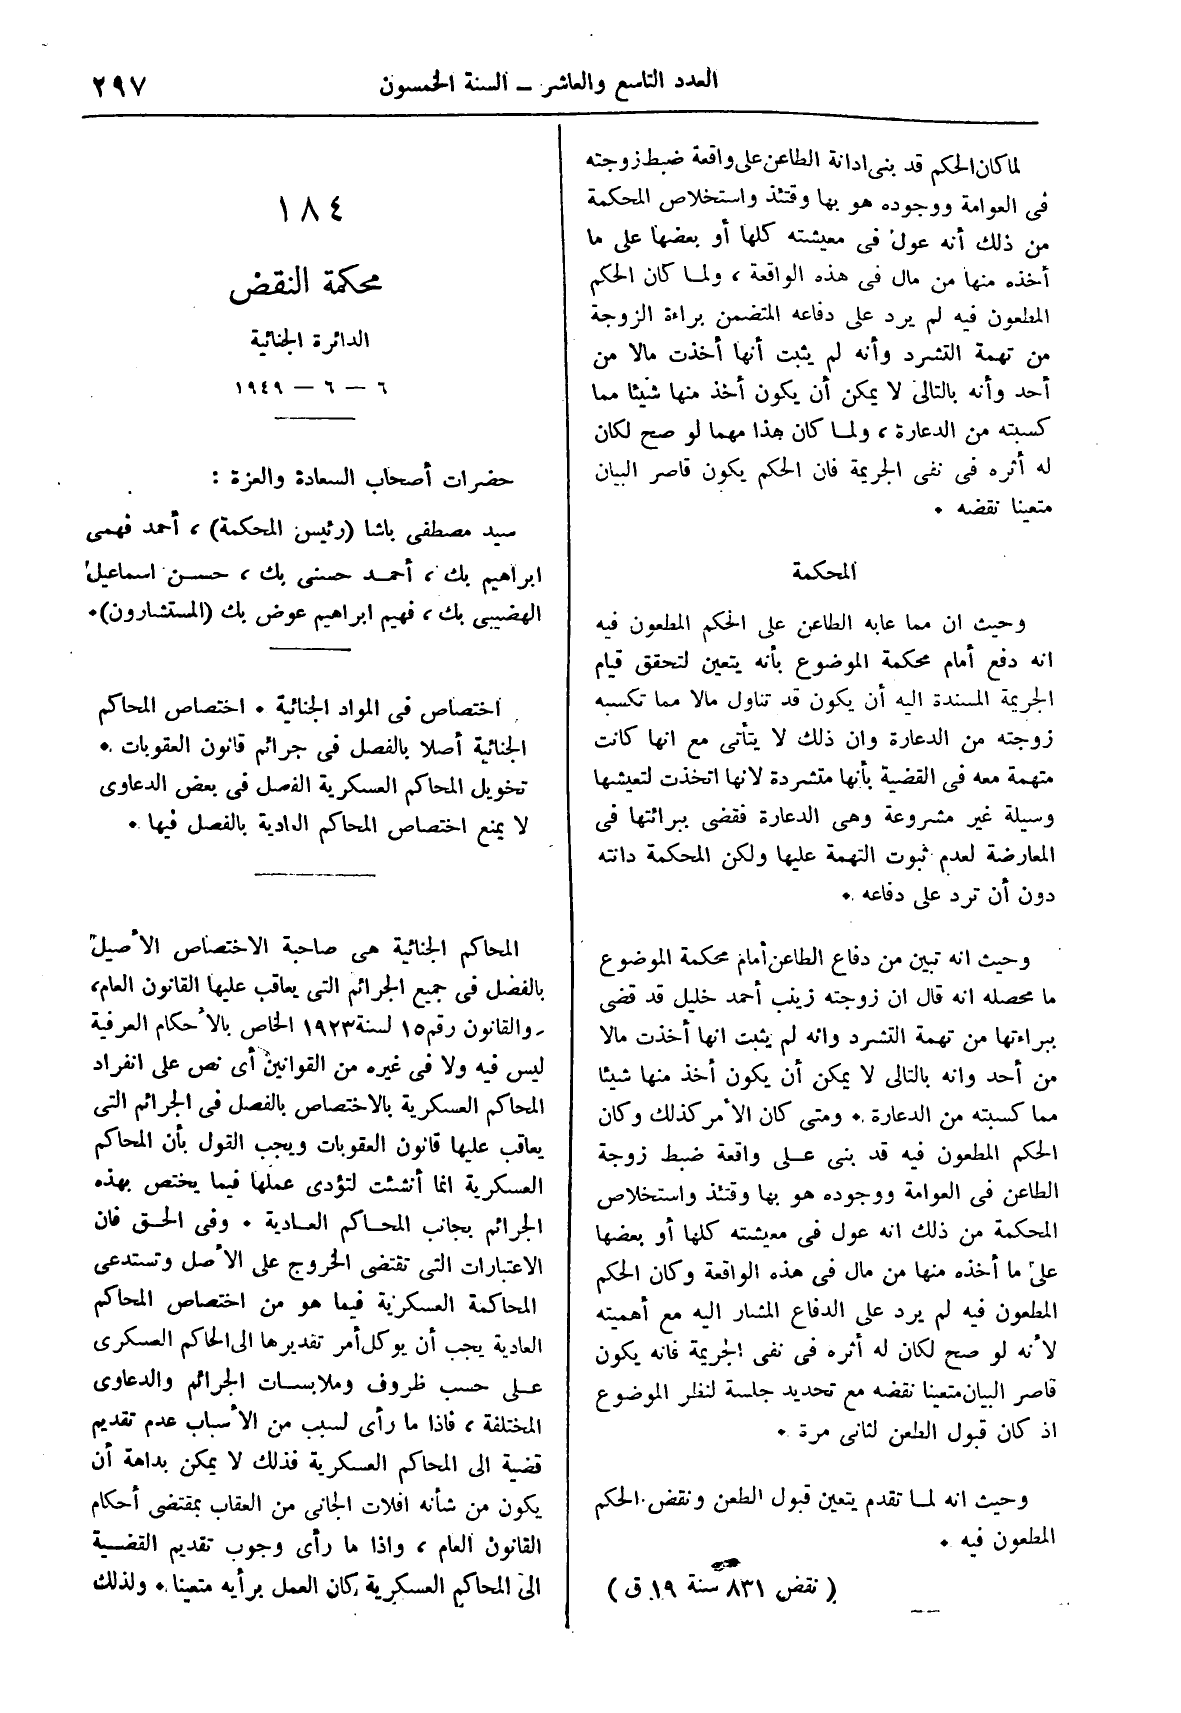 العدد التاسع والعاشر — السنة الخمسون
٢٩٧
لما كان الحكم قد بنى ادانة الطاعن على واقعة ضبط زوجته
فى العوامة ووجوده هو بها وقتئذ واستخلاص المحكمة
من ذلك أنه عول فى معيشته كلها أو بعضها على ما
أخذه منها من مال فى هذه الواقعة ، ولما كان الحكم
المطعون فيه لم يرد على دفاعه المتضمن براءة الزوجة
من تهمة التشرد وأنه لم يثبت أنها أخذت مالا من
أحد وأنه بالتالى لا يمكن أن يكون أخذ منها شيئا مما
كسبته من الدعارة ، ولما كان هذا مهما لو صح لكان
له أثره فى نفى الجريمة فان الحكم يكون قاصر البيان
متعينا نقضه .
المحكمة
وحيث ان مما عابه الطاعن على الحكم المطعون فيه
انه دفع أمام محكمة الموضوع بأنه يتعين لتحقق قيام
الجريمة المسندة اليه أن يكون قد تناول مالا مما تكسبه
زوجته من الدعارة وان ذلك لا يتأتى مع انها كانت
متهمة معه فى القضية بأنها متشردة لانها اتخذت لتعيشها
وسيلة غير مشروعة وهى الدعارة فقضى ببرائتها فى
المعارضة لعدم ثبوت التهمة عليها ولكن المحكمة دانته
دون أن ترد على دفاعه .
وحيث انه تبين من دفاع الطاعن أمام محكمة الموضوع
ما محصله انه قال ان زوجته زينب أحمد خليل قد قضى
ببراءتها من تهمة التشرد وانه لم يثبت انها أخذت مالا
من أحد وانه بالتالى لا يمكن أن يكون أخذ منها شيئا
مما كسبته من الدعارة . ومتى كان الأمر كذلك وكان
الحكم المطعون فيه قد بنى على واقعة ضبط زوجة
الطاعن فى العوامة ووجوده هو بها وقتئذ واستخلاص
المحكمة من ذلك انه عول فى معيشته كلها أو بعضها
على ما أخذه منها من مال فى هذه الواقعة وكان الحكم
المطعون فيه لم يرد على الدفاع المشار اليه مع أهميته
لأنه لو صح لكان له أثره فى نفى الجريمة فانه يكون
قاصر البيان متعينا نقضه مع تحديد جلسة لنظر الموضوع
اذ كان قبول الطعن لثانى مرة .
وحيث انه لما تقدم يتعين قبول الطعن ونقض الحكم
المطعون فيه .
( نقض ٨٣١ سنة ١٩ ق )
١٨٤
محكمة النقض
الدائرة الجنائية
٦ — ٦ — ١٩٤٩
حضرات أصحاب السعادة والعزة :
سيد مصطفى باشا (رئيس المحكمة) ، أحمد فهمى
ابراهيم بك ، أحمد حسنى بك ، حسن اسماعيل
الهضيبى بك ، فهيم ابراهيم عوض بك (المستشارون).
اختصاص فى المواد الجنائية . اختصاص المحاكم
الجنائية أصلا بالفصل فى جرائم قانون العقوبات .
تخويل المحاكم العسكرية الفصل فى بعض الدعاوى
لا يمنع اختصاص المحاكم العادية بالفصل فيها .
المحاكم الجنائية هى صاحبة الاختصاص الأصيل
بالفضل فى جميع الجرائم التى يعاقب عليها القانون العام،
والقانون رقم ١٥ لسنة ١٩٢٣ الخاص بالأحكام العرفية
ليس فيه ولا فى غيره من القوانين أى نص على انفراد
المحاكم العسكرية بالاختصاص بالفصل فى الجرائم التى
يعاقب عليها قانون العقوبات ويجب القول بأن المحاكم
العسكرية انما أنشئت لتؤدى عملها فيما يختص بهذه
الجرائم بجانب المحاكم العادية . وفى الحق فان
الاعتبارات التى تقتضى الخروج على الأصل وتستدعى
المحاكمة العسكرية فيما هو من اختصاص المحاكم
العادية يجب أن يوكل أمر تقديرها الى الحاكم العسكرى
على حسب ظروف وملابسات الجرائم والدعاوى
المختلفة ، فاذا ما رأى لسبب من الأسباب عدم تقديم
قضية الى المحاكم العسكرية فذلك لا يمكن بداهة أن
يكون من شأنه افلات الجانى من العقاب بمقتضى أحكام
القانون العام ، واذا ما رأى وجوب تقديم القضية
الى المحاكم العسكرية كان العمل برأيه متعينا . ولذلك